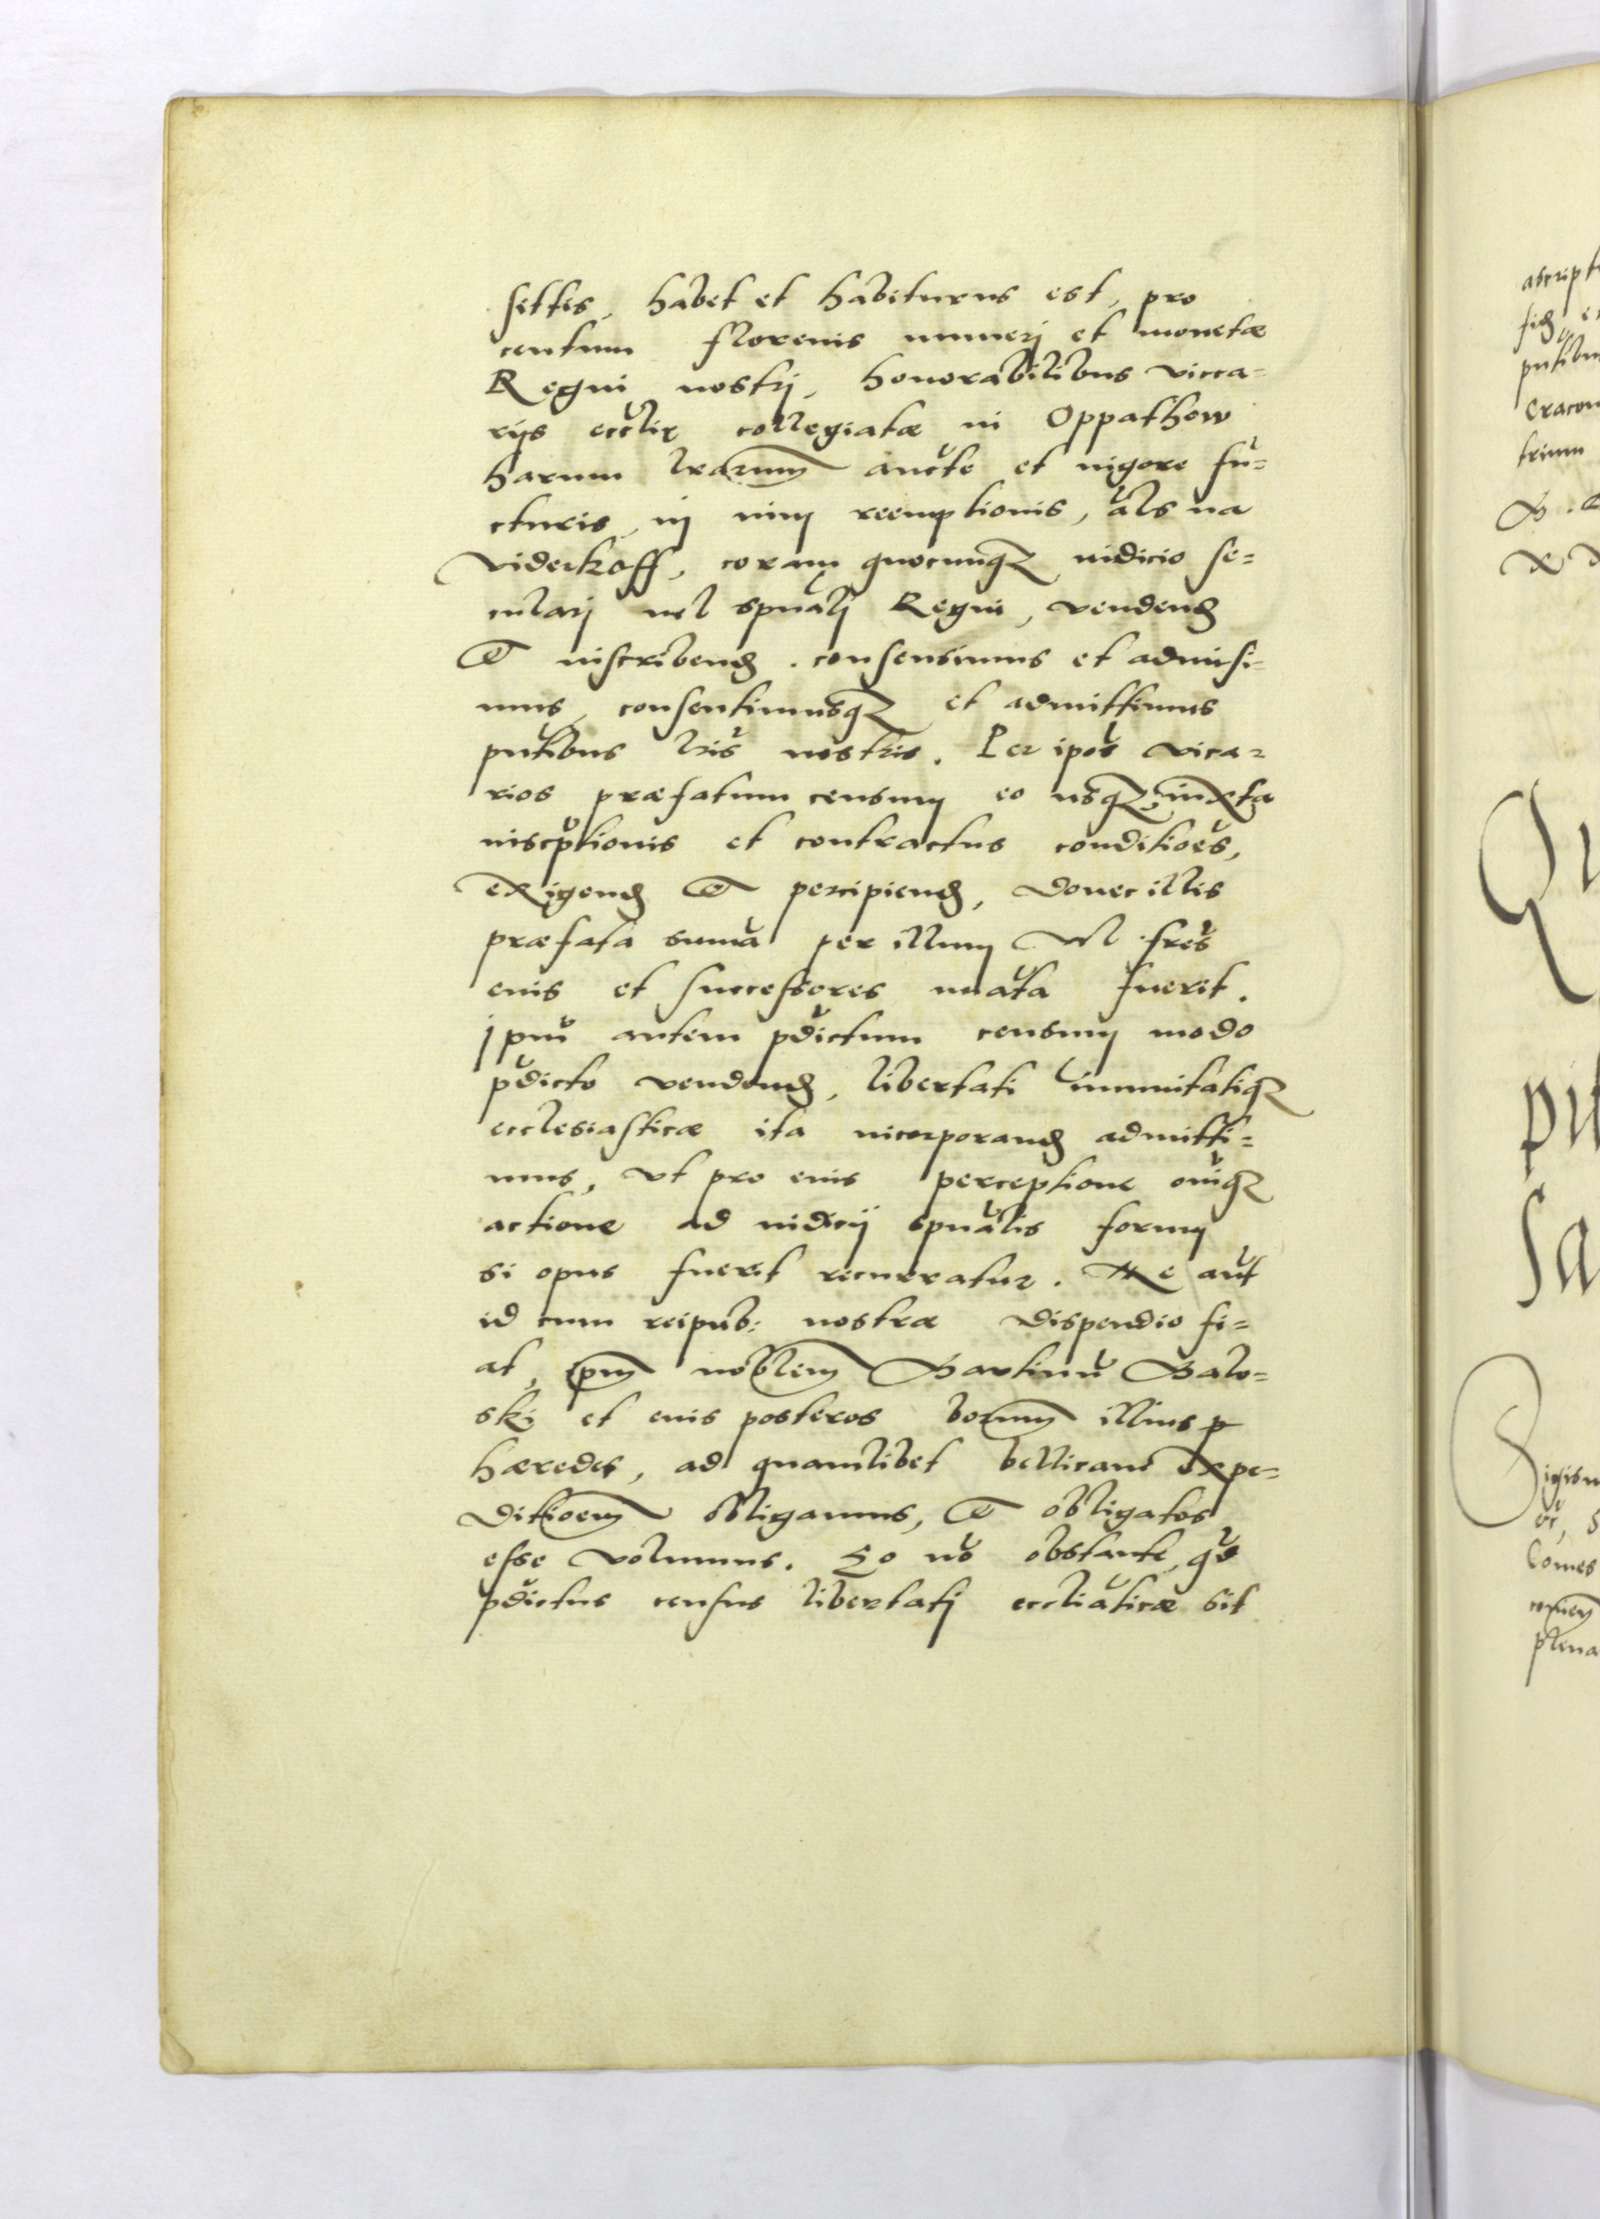 settis, habet et habiturus est, pro
centum florenis numerj et monetæ
Regni nostrj, honorabilibus vicca=
rijs eccliæ collegiatæ in Oppathow
harum lrarum aucte et vigore fu=
cturis, in vim reemptionis, als na
viderkoff, coram quocunqz iudicio se=
cularj vel spualj Regni, vendend
et inscribend. consensimus et admisi=
mus, consentimusqz et admittimus
pntibus lris nostris. Per ipos vica=
rios præfatum censum eo usqz, iuxta
inscptionis et contractus conditioes,
exigend et percipiend, donec illis
præfata suma per illum vel fres
eius et successores nuata fuerit.
jpm autem pdictum censum modo
pdicto vendend, libertati immunitatiqz
ecclesiasticæ ita incorporand admitti=
mus, vt pro eius perceptione oniqz
actione ad iudicij spualis formam
si opus fuerit recurratur. Ne aut
id cum reipub: nostræ dispendio fi=
at, ipm noblem Martinu Balo=
ski et eius posteros bonorum illius p
hæredes, ad quamlibet bellicam expe=
ditioem obligamus, et obligatos
esse volumus. Eo no obstante, qd
pdictus census libertatj eccliaticæ sit